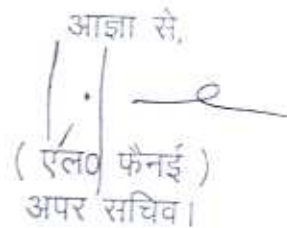 आज्ञा से,
( एल0 फैनई )
अपर सचिव।